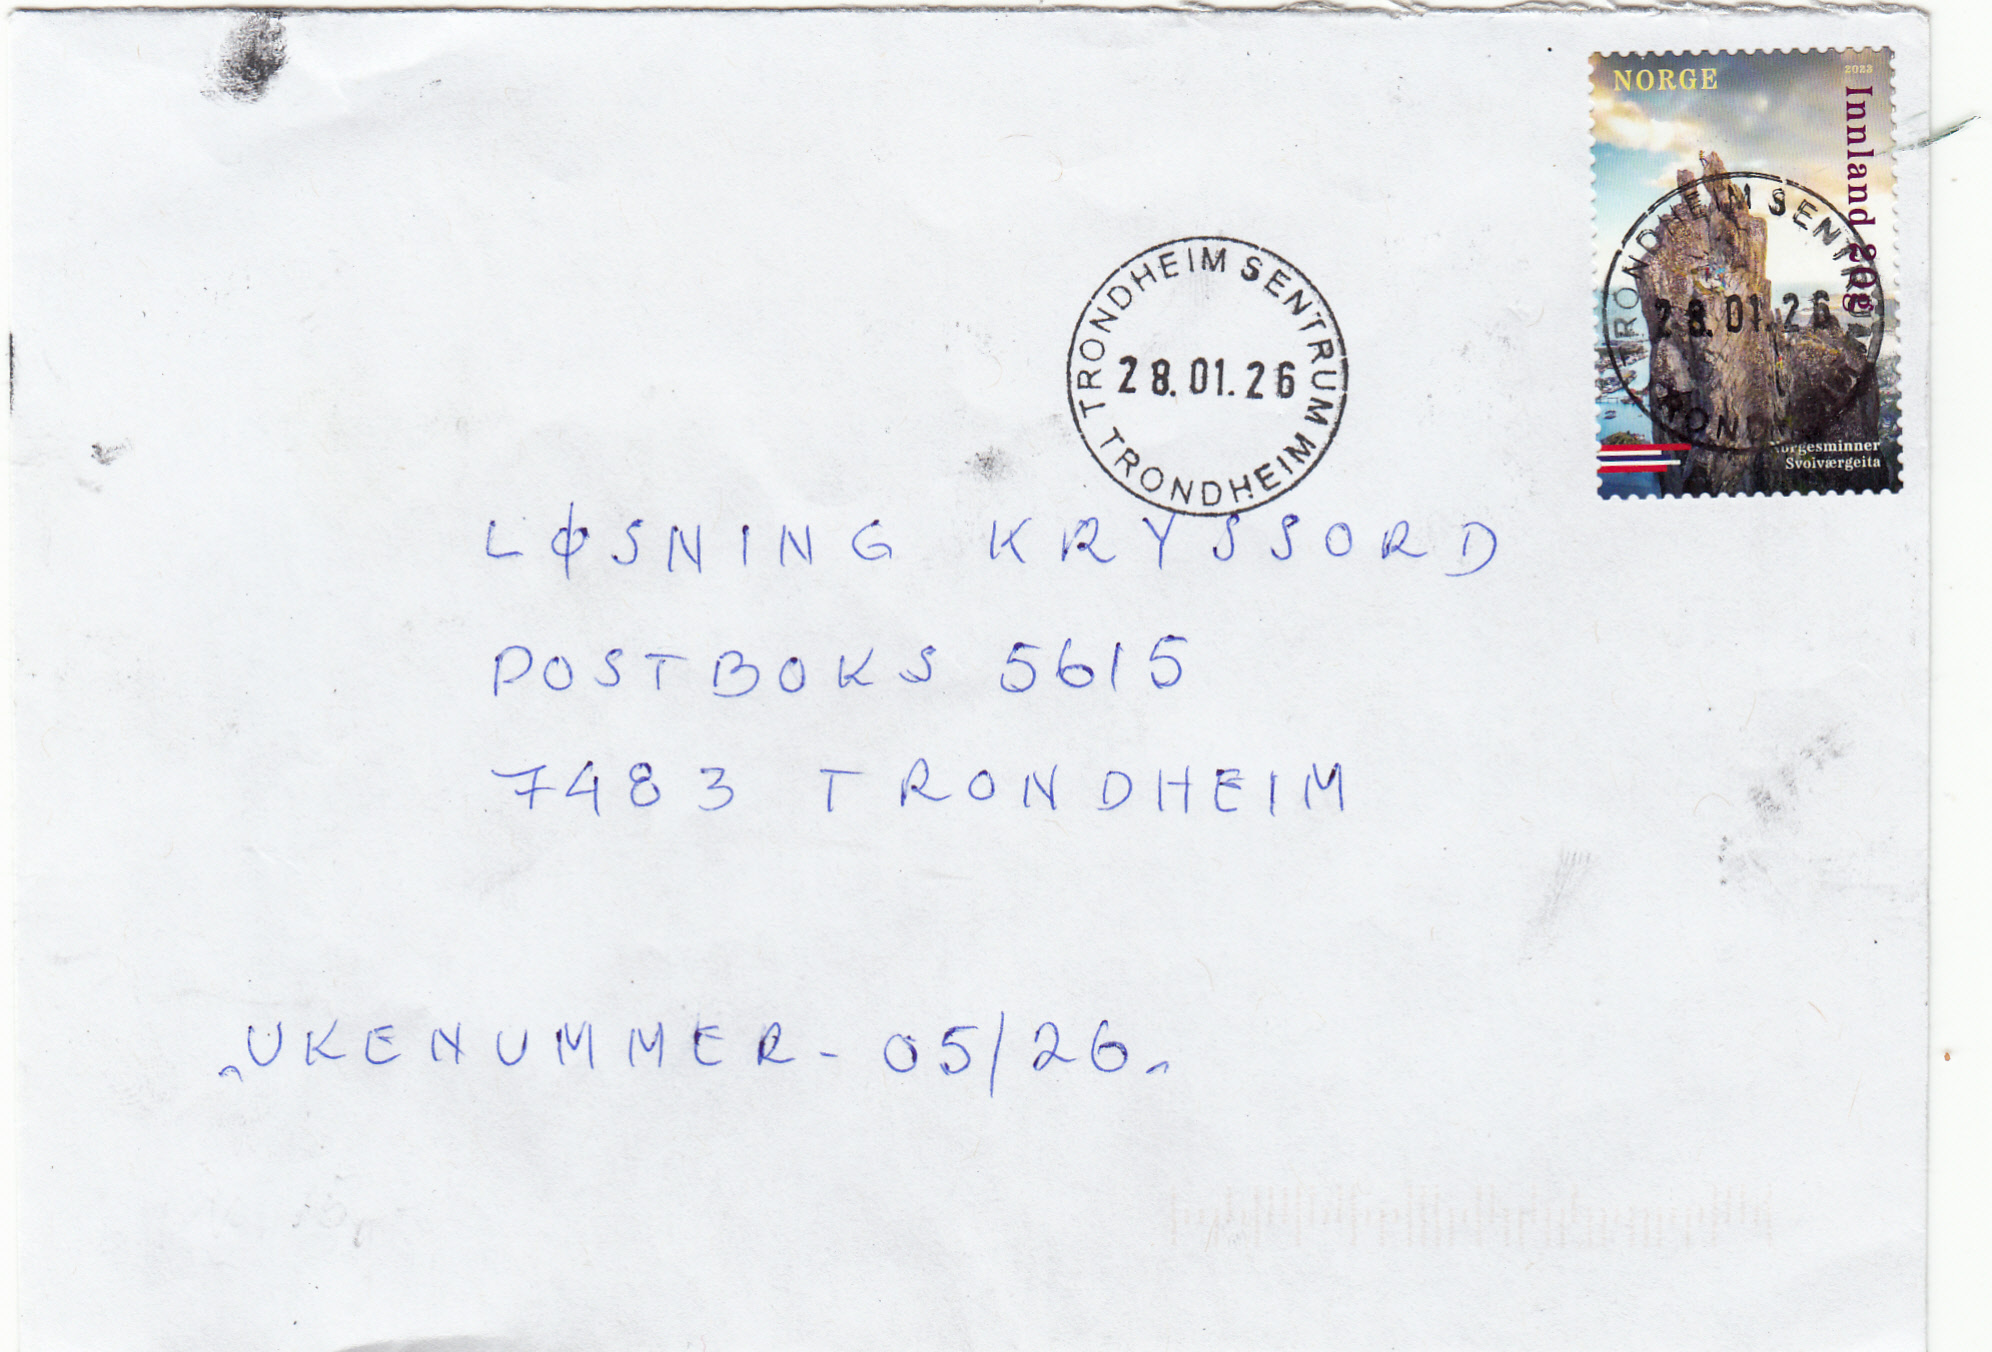 NORGE
2023
Innland 20g
TRONDHEIM SENTRUM
28.01.26
TRONDHEIM
TRONDHEIM SENTRUM
28.01.26
TRONDHEIM
Norgesminner
Svolværgeita
LØSNING KRYSSORD
POSTBOKS 5615
7483 TRONDHEIM
„UKENUMMER - 05/26„